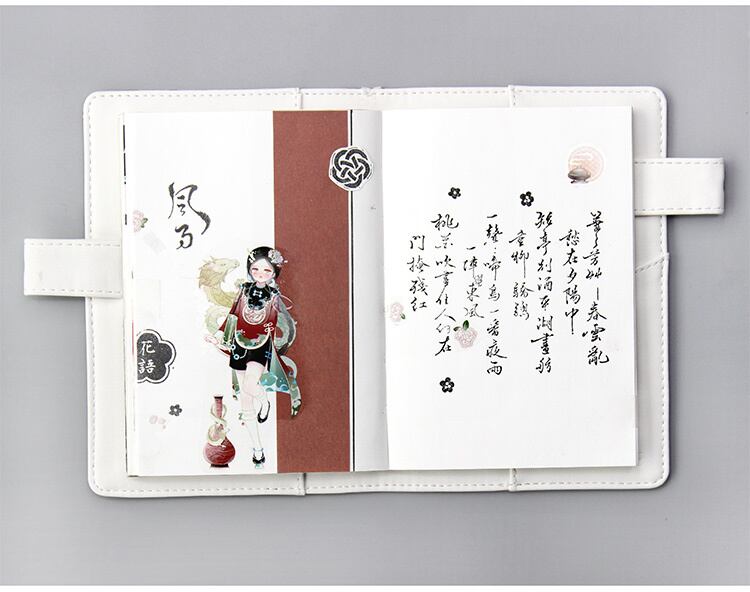 花語
萋々芳艸春雲亂
愁在夕陽中
短亭別酒平湖畫舫
垂柳驕驄
一聲啼鳥一番夜雨
一陣東風
桃花吹盡佳人何在
門掩殘紅